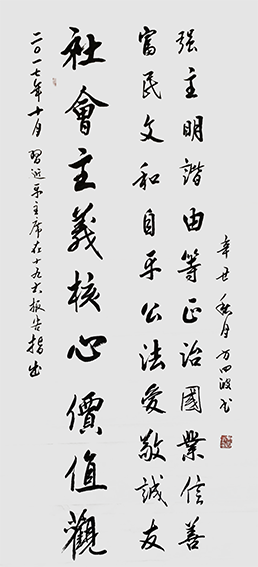 二〇一七年十月 習近平主席在十九大报告指出
社會主義核心價值觀
富强
民主
文明
和諧
自由
平等
公正
法治
愛國
敬業
誠信
友善
辛丑秋月方四波书